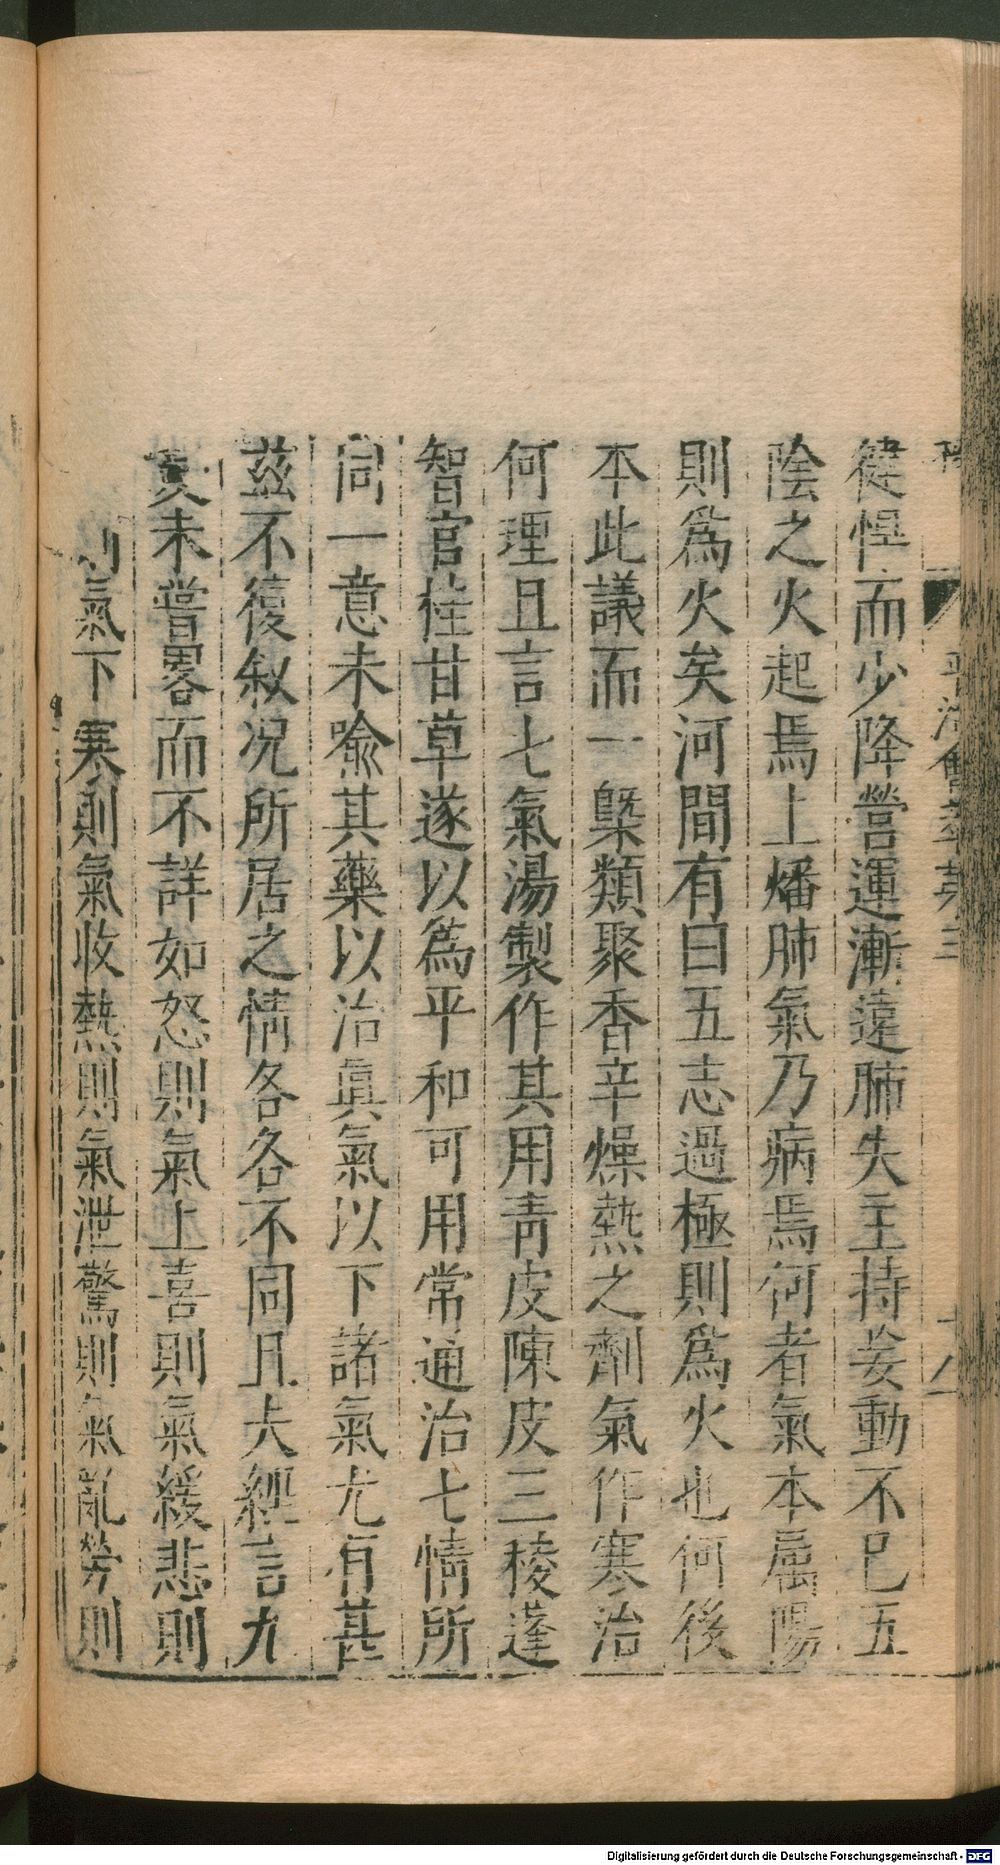 平治會萃卷三
健悍而少降營運漸遠肺失主持妄動不已五
陰之火起焉上燔肺氣乃病焉何者氣本屬陽
則為火矣河間有曰五志過極則為火也何後
本此議而一槩類聚香辛燥熱之劑氣作寒治
何理且言七氣湯製作其用青皮陳皮三稜蓬
智官桂甘草遂以為平和可用常通治七情所
同一意未喻其藥以治眞氣以下諸氣尤有甚
茲不復叙况所居之情各各不同且夫經言九
氣未嘗畧而不詳如怒則氣上喜則氣緩悲則
則氣下寒則氣收熱則氣泄驚則氣亂勞則
Digitalisierung gefördert durch die Deutsche Forschungsgemeinschaft - DFG